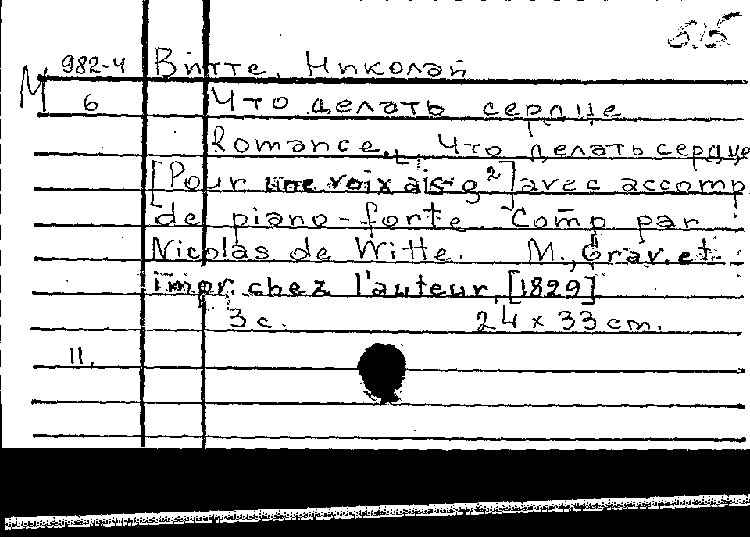 5.5
982-4 Витте, Николай
М 6 Что делать сердце
Romance. Что делать сердце
[Pour une voix ais-g²] avec accomp.
de piano-forte. Comp. par
Nicolas de Witte. М., Grav. et
impr. chez l'auteur, [1829]
3 с. 24 x 33 cm.
11.